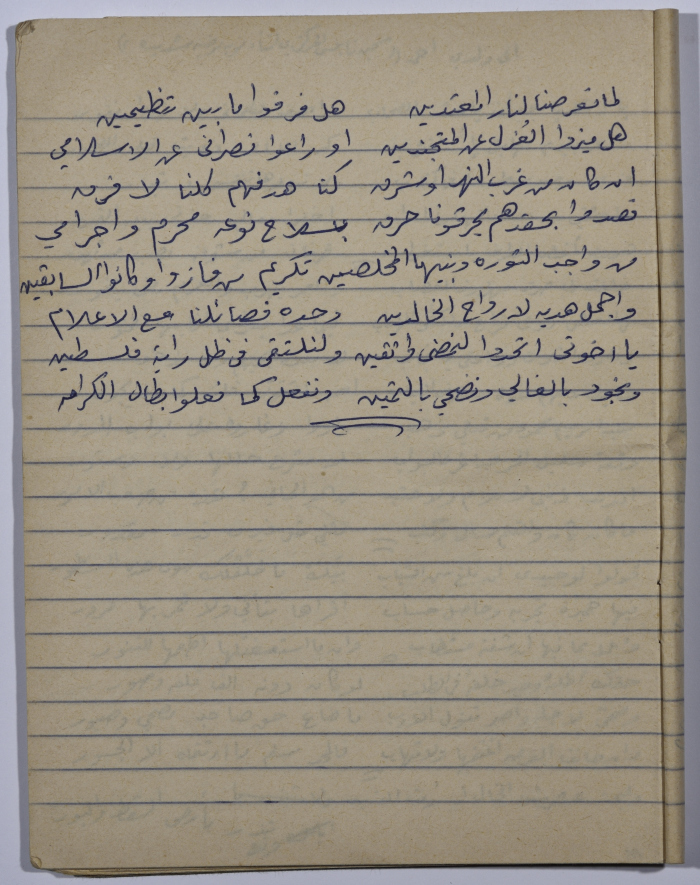 لما تعرضنا لنار المعتدين هل فرقوا ما بين تنظيمين
هل ميزوا العُزل عن المتجندين او راعوا نصراني عن الاسلامي
ان كان من غرب النهر او شرقه كنا هدفهم كلنا لا فرقه
قصدوا بحقدهم يحرقونا حرقه بسلاح نوعه محرم واجرامي
من واجب الثوره وبنيها المخلصين تكريم من فازوا وكانوا السابقين
واجمل هديه لارواح الخالدين وحدة فصائلنا مع الاعلام
يا اخوتي اتحدوا لنمضي واثقين ولنلتقي في ظل راية فلسطين
ونجود بالغالي ونضحي بالثمين ونفعل كما فعلوا ابطال الكرامه